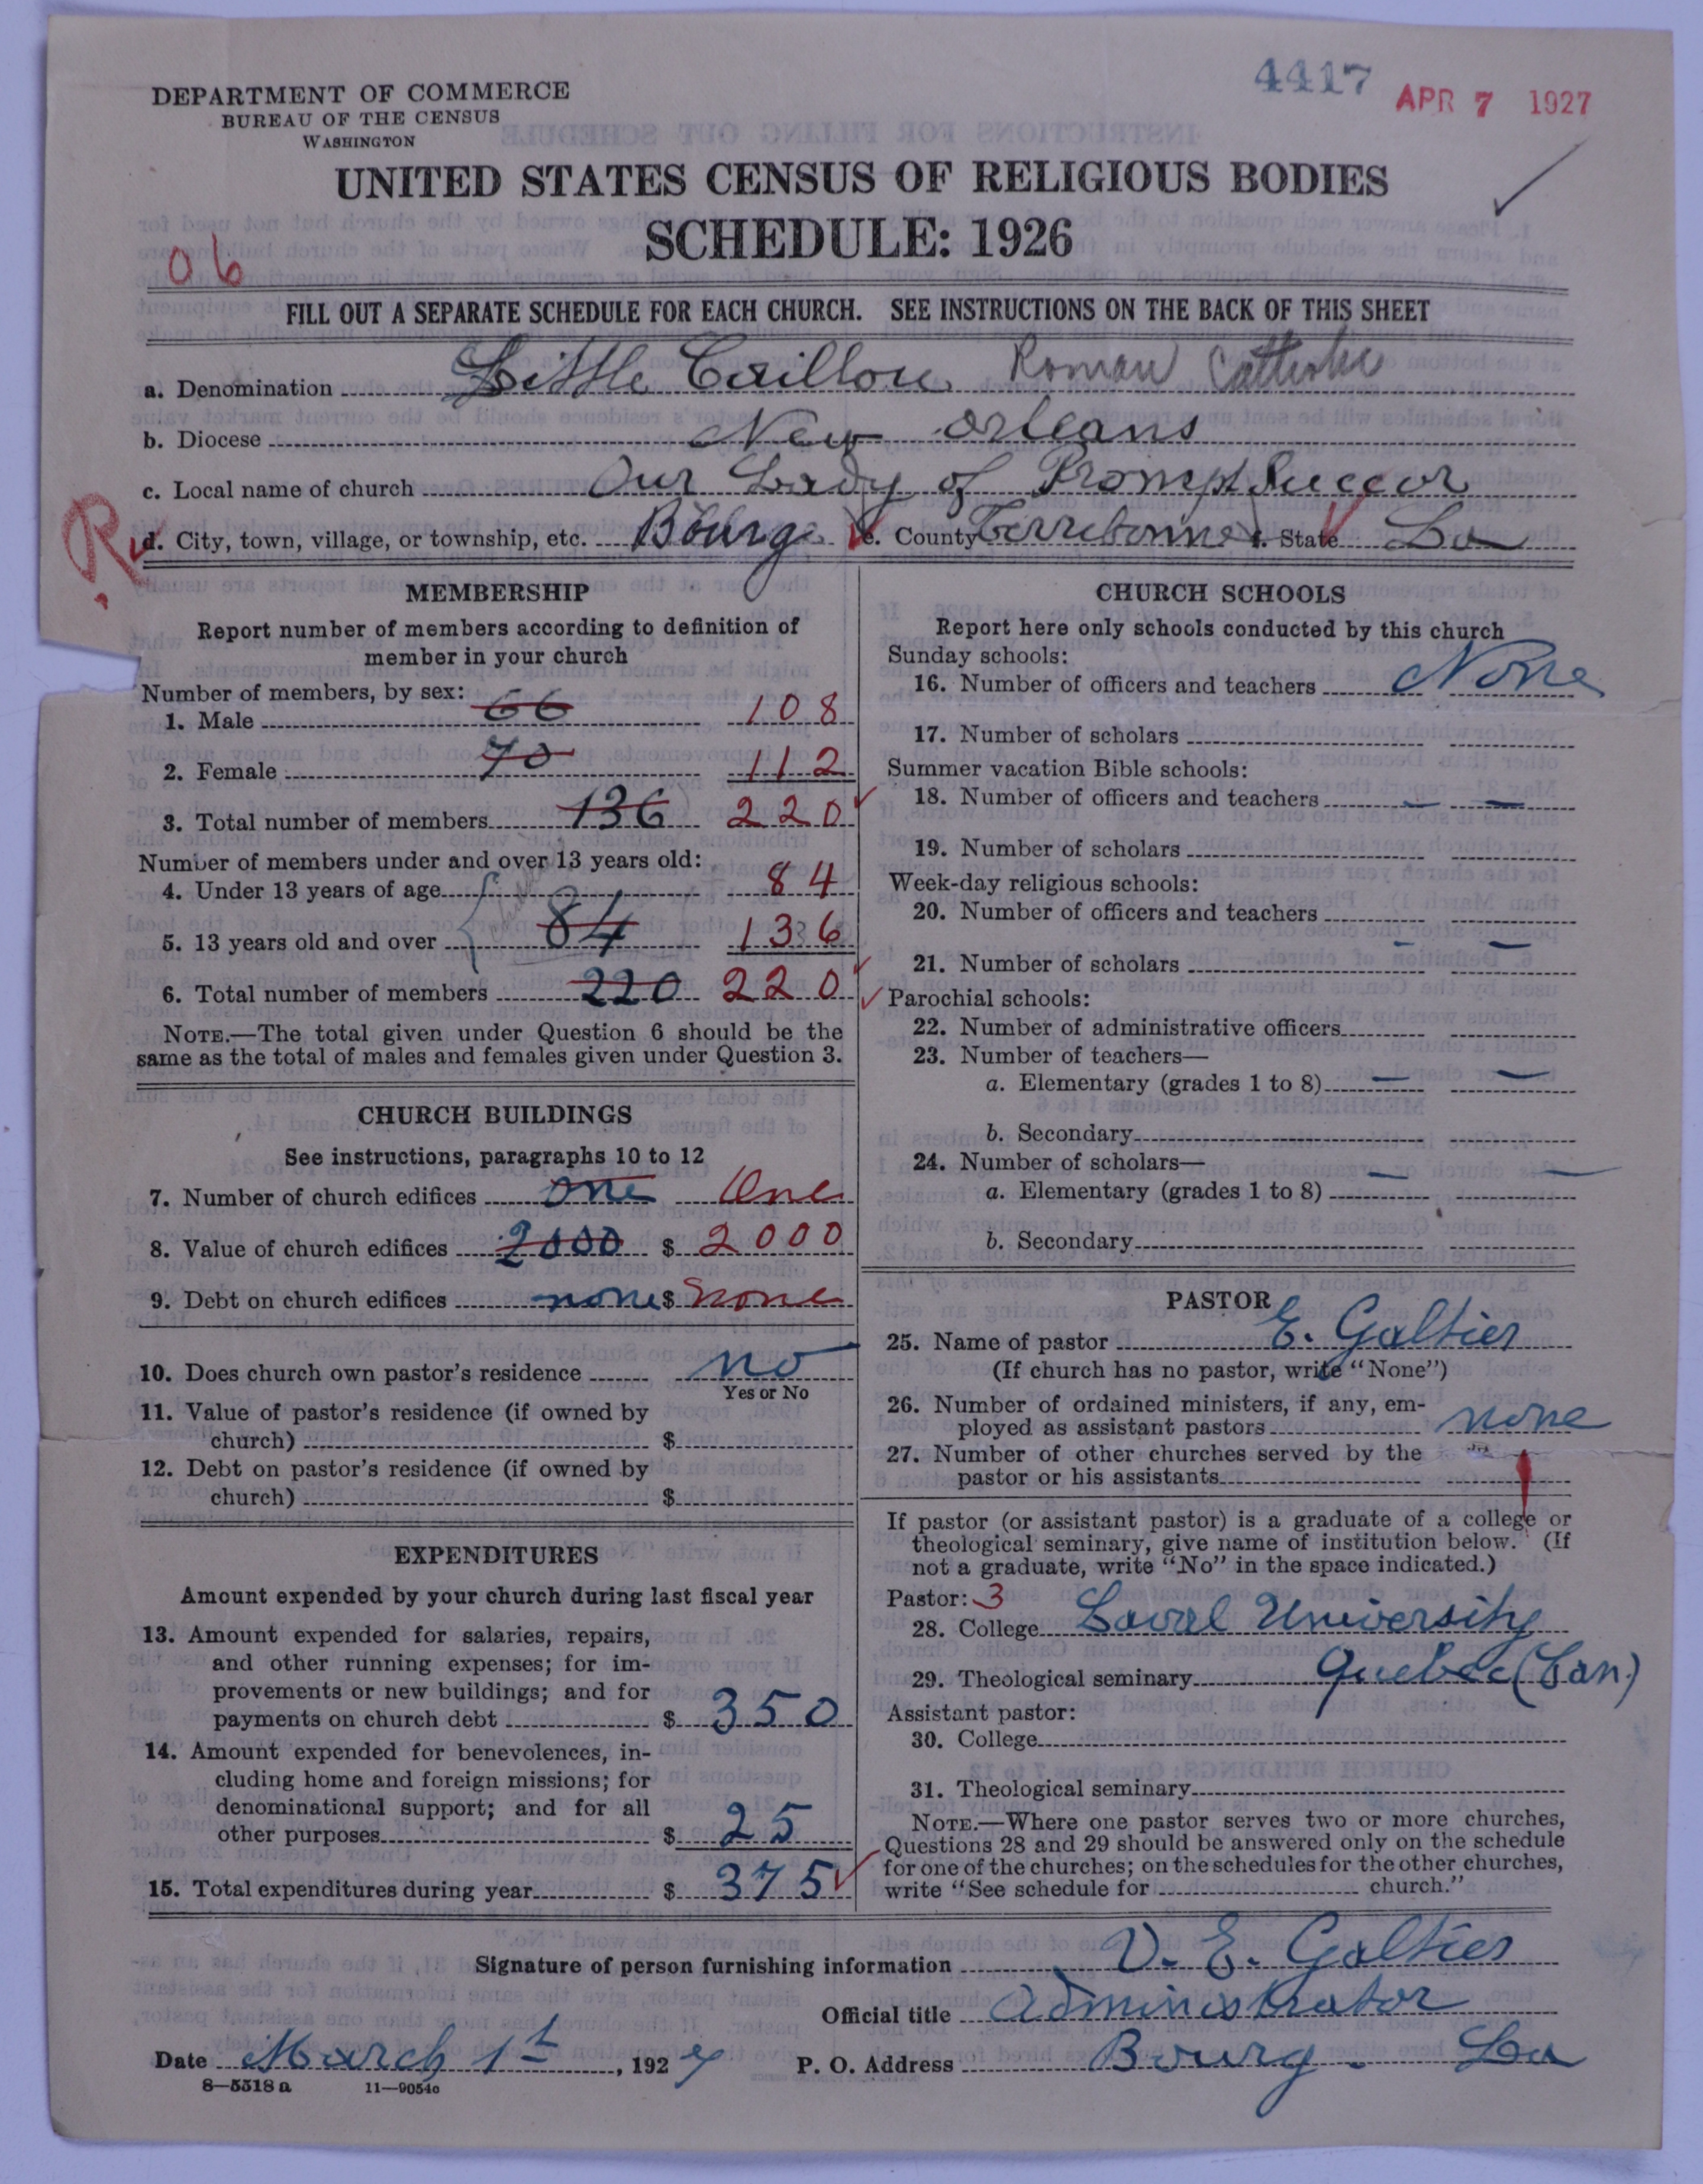 4417
APR 7 1927
DEPARTMENT OF COMMERCE
BUREAU OF THE CENSUS
WASHINGTON
UNITED STATES CENSUS OF RELIGIOUS BODIES
SCHEDULE: 1926
06
FILL OUT A SEPARATE SCHEDULE FOR EACH CHURCH. SEE INSTRUCTIONS ON THE BACK OF THIS SHEET
a. Denomination Little Caillou Roman Catholic
b. Diocese New Orleans
c. Local name of church Our Lady of Prompt Succor
R
d. City, town, village, or township, etc. Bourg e. County Terrebonne f. State La
MEMBERSHIP
Report number of members according to definition of
member in your church
Number of members, by sex:
1. Male 66 108
2. Female 70 112
3. Total number of members 136 220
Number of members under and over 13 years old:
4. Under 13 years of age 84
5. 13 years old and over 84 136
6. Total number of members 220 220
NOTE.—The total given under Question 6 should be the
same as the total of males and females given under Question 3.
CHURCH BUILDINGS
See instructions, paragraphs 10 to 12
7. Number of church edifices one One
8. Value of church edifices 2000 $ 2000
9. Debt on church edifices none $ none
10. Does church own pastor's residence no
Yes or No
11. Value of pastor's residence (if owned by
church) $
12. Debt on pastor's residence (if owned by
church) $
EXPENDITURES
Amount expended by your church during last fiscal year
13. Amount expended for salaries, repairs,
and other running expenses; for im-
provements or new buildings; and for
payments on church debt $ 350
14. Amount expended for benevolences, in-
cluding home and foreign missions; for
denominational support; and for all
other purposes $ 25
15. Total expenditures during year $ 375
CHURCH SCHOOLS
Report here only schools conducted by this church
Sunday schools:
16. Number of officers and teachers None
17. Number of scholars
Summer vacation Bible schools:
18. Number of officers and teachers — —
19. Number of scholars
Week-day religious schools:
20. Number of officers and teachers
21. Number of scholars — —
Parochial schools:
22. Number of administrative officers
23. Number of teachers—
a. Elementary (grades 1 to 8) — —
b. Secondary
24. Number of scholars—
a. Elementary (grades 1 to 8) — —
b. Secondary
PASTOR
25. Name of pastor E. Galtier
(If church has no pastor, write "None")
26. Number of ordained ministers, if any, em-
ployed as assistant pastors none
27. Number of other churches served by the
pastor or his assistants 1
If pastor (or assistant pastor) is a graduate of a college or
theological seminary, give name of institution below. (If
not a graduate, write "No" in the space indicated.)
Pastor: 3
28. College Laval University
29. Theological seminary Quebec (Can.)
Assistant pastor:
30. College
31. Theological seminary
NOTE.—Where one pastor serves two or more churches,
Questions 28 and 29 should be answered only on the schedule
for one of the churches; on the schedules for the other churches,
write "See schedule for church."
Signature of person furnishing information V. E. Galtier
Official title Administrator
Date March 1st, 1927 P. O. Address Bourg. La
8—5518 a 11—9054c